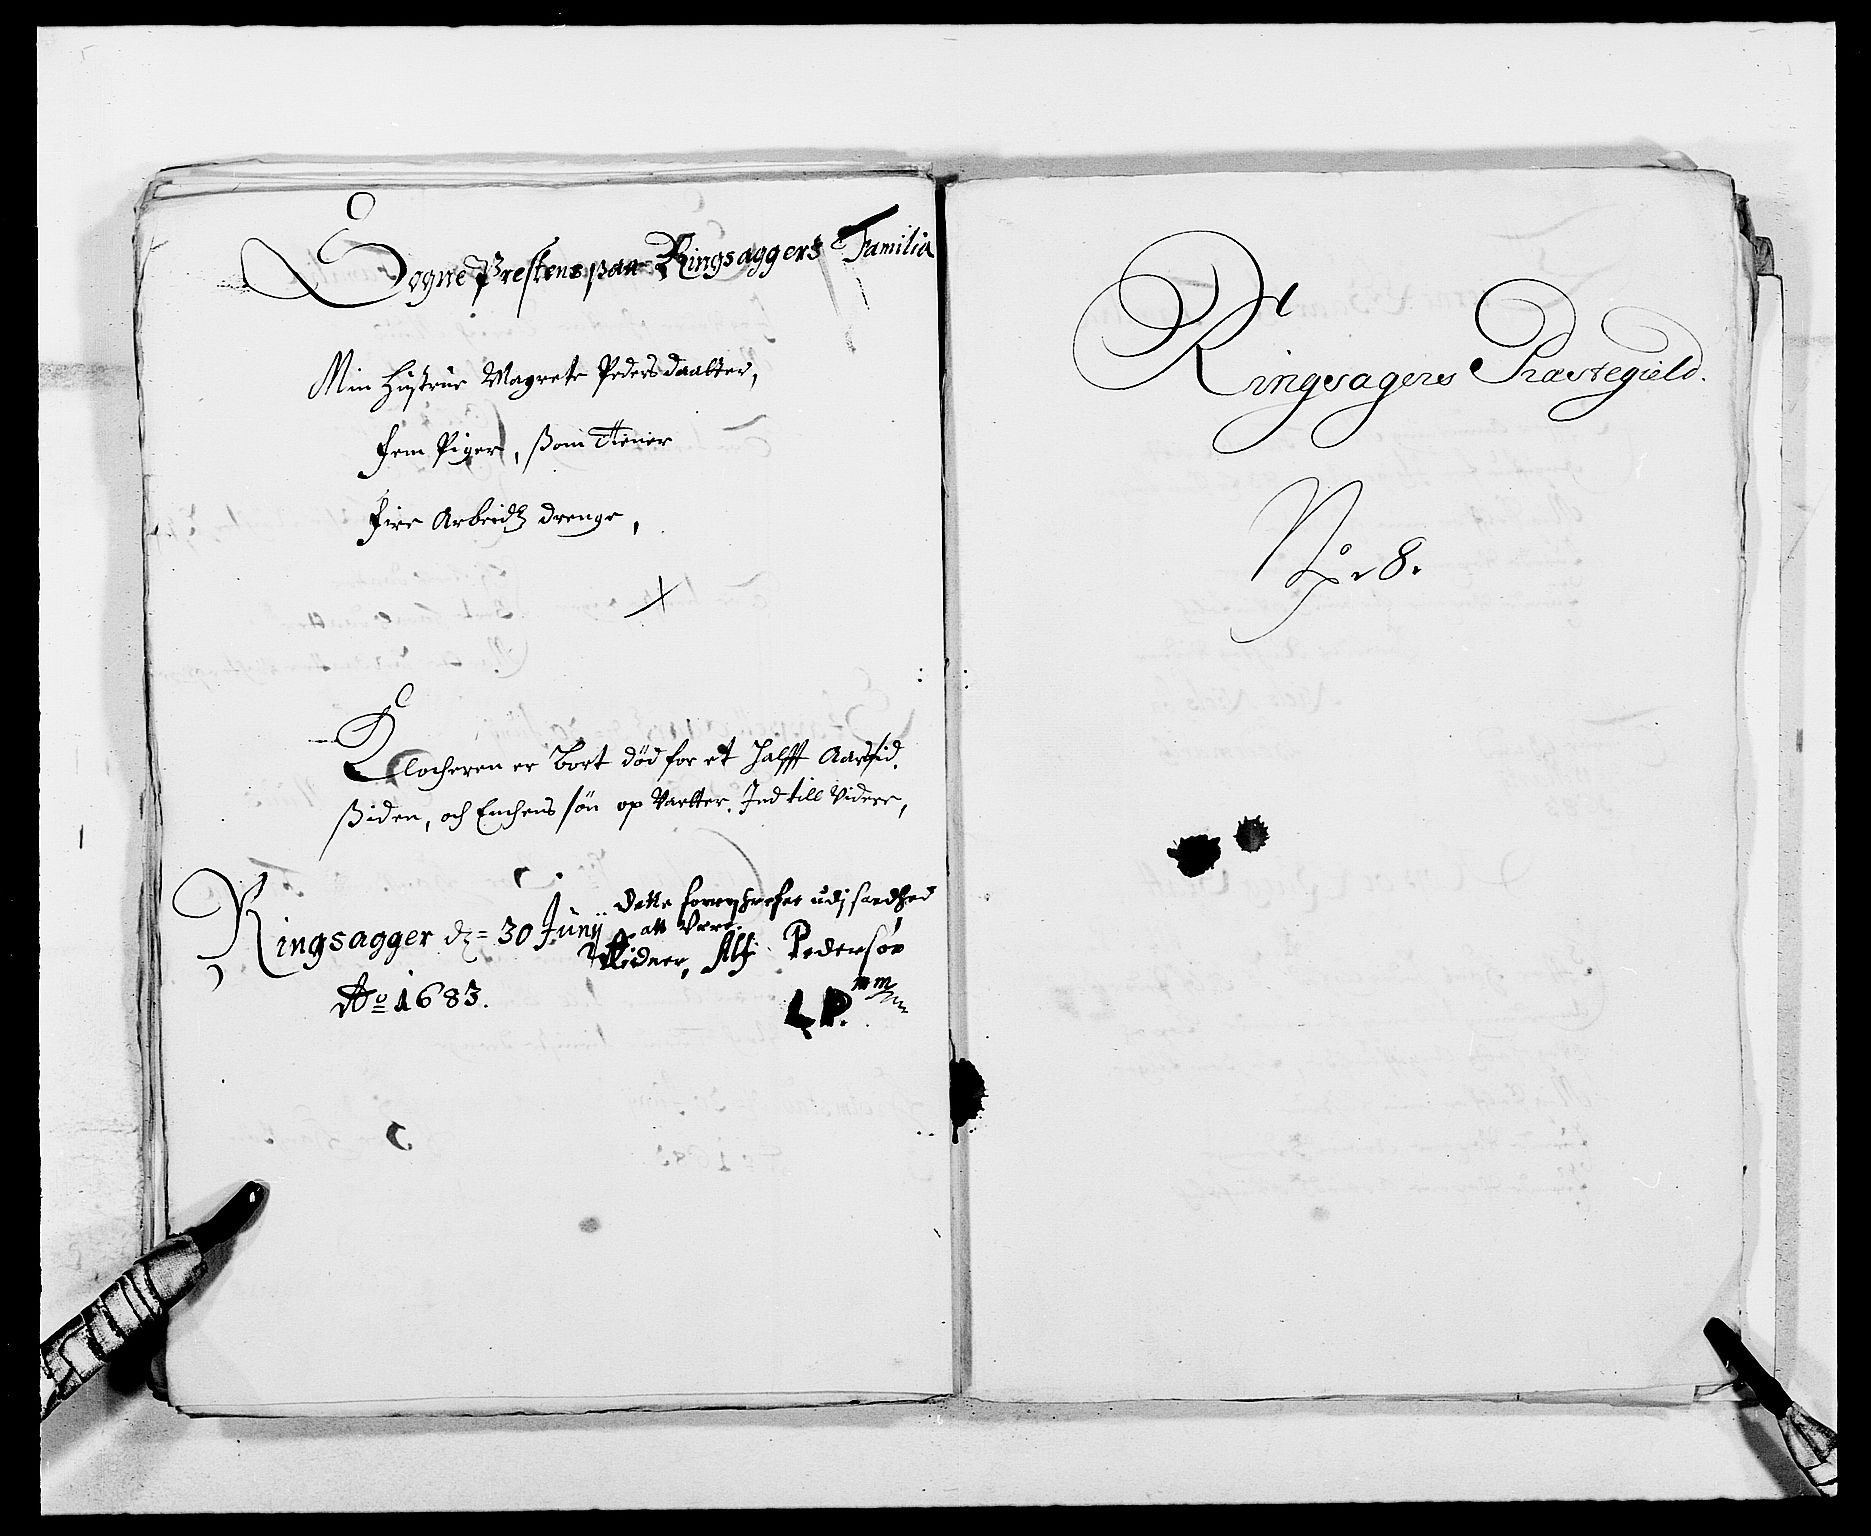 Sogne Prestens paa Ringsaggers Familia
Min Hustrue Magrete Pedersdaatter,
fem Piger, ßom Tiener
fire Arbeidz drenge,
Klocheren er bort död for et halfft Aarstid
ßiden, och Enchens sön op Vartter. Ind till Videre,
Ringsagger dz= 30 Junij
Ao 1683.
Dette forreschrefne udj sandhed
att Være
Vidner, Alf Pedersøn
mm
L P.
Ringsagers Præstegield.
No 8.